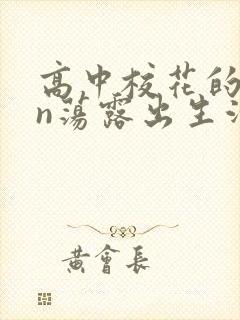 高中校花的
n荡露出生活
黄會長